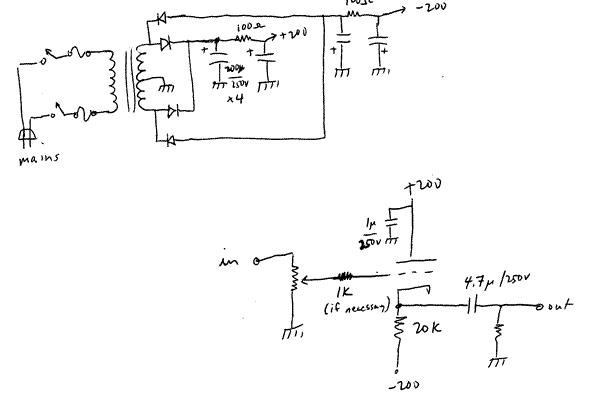 100Ω
-200
100Ω
+200
+
+
+
+
200µ
250V
x4
mains
+200
1µ
250V
in
1K
(if necessary)
4.7µ/250V
out
20K
-200